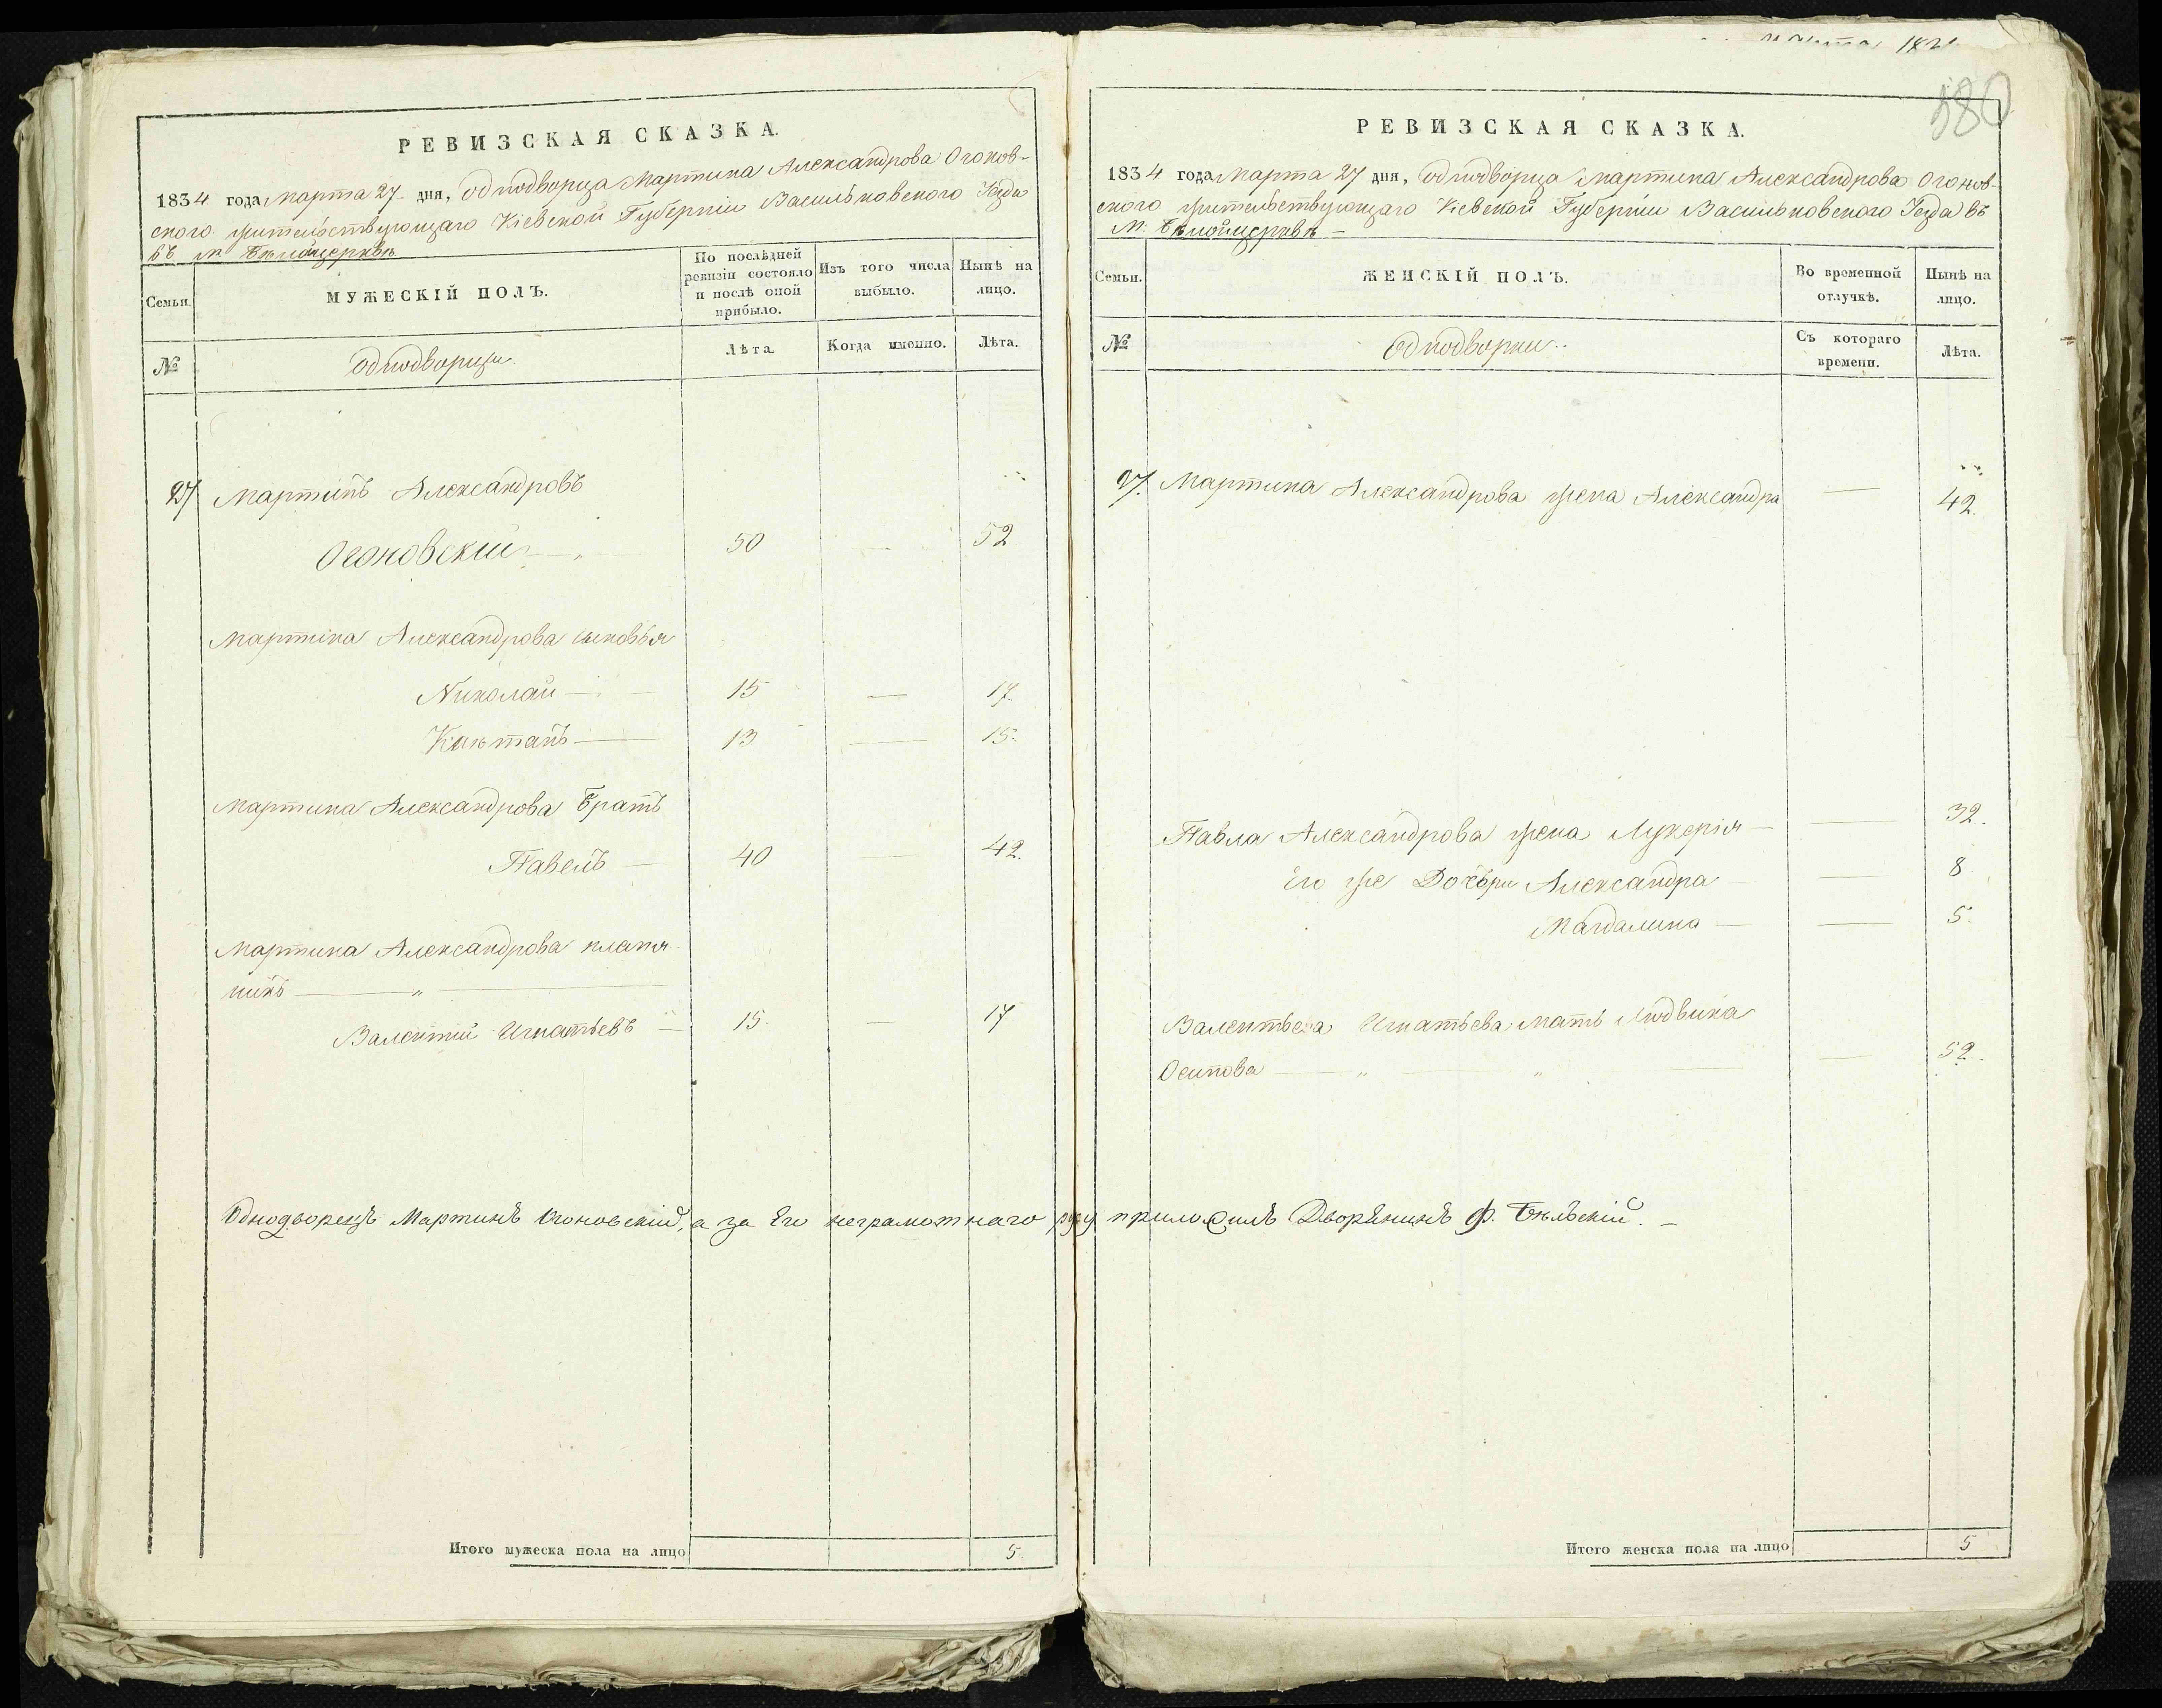 РЕВИЗСКАЯ СКАЗКА.
1834 года марта 27 дня, однодворца Мартина Александрова Оганов-
ского жительствующаго Кіевской Губерніи Васильковского Уезда
въ м. Белойцерквѣ
Семьи.
МУЖЕСКІЙ ПОЛЪ.
По послѣдней ревизіи состояло и послѣ оной прибыло.
Изъ того числа выбыло.
Нынѣ на лицо.
№
Однодворцы
Лѣта.
Когда именно.
Лѣта.
27 Мартинъ Александровъ
Огоновскій 50 — 52
Мартина Александрова сыновья
Николай — 15 — 17
Каэтанъ — 13 — 15
Мартина Александрова Братъ
Павелъ — 40 — 42.
Мартина Александрова племя
никъ — „ —
Валентій Игнатьевъ — 15 — 17
Итого мужеска пола на лицо 5
580
РЕВИЗСКАЯ СКАЗКА.
1834 года Марта 27 дня, однодворца Мартина Александрова Огонов-
ского жительствующаго Кіевской Губерніи Васильковского Уезда въ
м: Белойцерквѣ —
Семьи.
ЖЕНСКІЙ ПОЛЪ.
Во временной отлучкѣ.
Нынѣ на лицо.
№
Однодворки
Съ котораго времени.
Лѣта.
27. Мартина Александрова жена Александра — 42.
Павла Александрова жена Лукерія — — 32.
Его же Дочѣри Александра — — 8
Магдалина — — 5
Валентьева Игнатьева мать Людвика
Осипова — „ — „ — 52.
Однодворецъ Мартинъ Огоновскій, а за Его неграмотнаго руку приложилъ Дворянинъ Ф. Бѣльскій. —
Итого женска пола на лицо 5